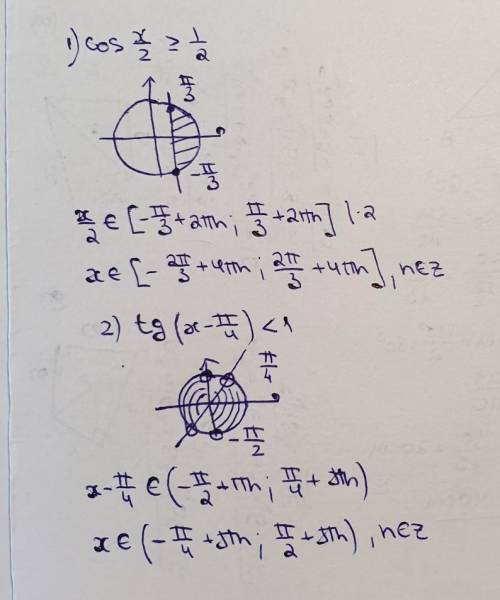 1) cos x/2 ≥ 1/2
π/3
0
-π/3
x/2 ∈ [-π/3 + 2πn; π/3 + 2πn] |·2
x ∈ [-2π/3 + 4πn; 2π/3 + 4πn], n∈z
2) tg (x - π/4) < 1
π/4
0
-π/2
x - π/4 ∈ (-π/2 + πn; π/4 + πn)
x ∈ (-π/4 + πn; π/2 + πn), n∈z